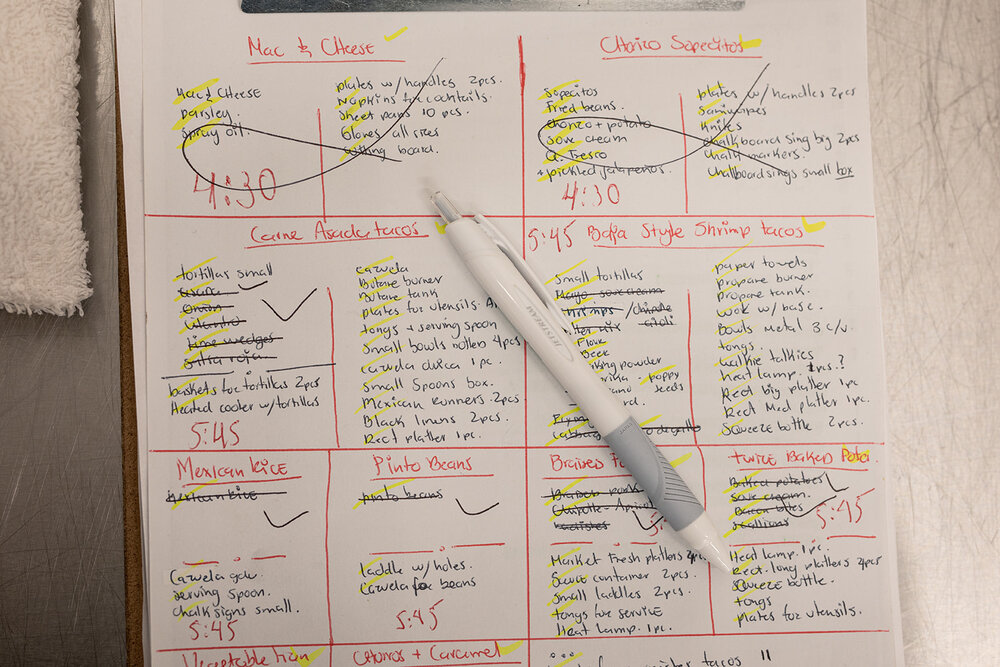 Mac & CHeese
Mac & CHeese
Parsley.
Spray oil.
4:30
plates w/handles 2pcs.
Napkins for cocktails.
Sheet pans 10 pcs.
Gloves all sizes
board.
Chorizo Sopecitos
Sopecitos
Fried beans.
chorizo + potato
Sour cream
Q. Fresco
+ pickled jalapeños.
4:30
plates w/ handles 2pcs
Saniwipes
Knifes
chalkboard sing big 2pcs
Chalk markers.
Chalboard sings small box
Carne Asada tacos
tortillas small
Guaca
Onion
Cilantro
lime wedges
Salsa roja
baskets for tortillas 2pcs
Heated cooler w/tortillas
5:45
cazuela
Butane burner
Butane tank
plates for utensils
tongs + serving spoon
Small bowls bollen 4pcs
cazuela chica 1pc.
Small Spoons box.
Mexican runners 2pcs
Black linens 2pcs.
Rect platter 1pc.
5:45 Baja Style Shrimp tacos
Small tortillas
Mayo sour cream
Flour
Beer
king powder
poppy
seeds
paper towels
propane burner
propane tank.
wok w/base.
Bowls metal 3 c/u.
tongs.
walkie talkies
heat lamp. 1pcs.?
Rect big platter 1pc
Rect Med platter 1pc.
Squeeze bottle 2pcs.
Mexican Rice
Mexican rice
Cazuela
Serving Spoon.
chalk signs small.
5:45
Pinto Beans
pinto beans
laddle w/holes.
Cazuela for beans
5:45
Braised
Braised pork
Chipotle
Radishes
5
Market Fresh platters 2pc
Sauce container 2pcs.
Small laddles 2pcs.
tongs for service
Heat lamp. 1pc.
Twice Baked
Baked potatoes
Sour cream.
Bacon bites
Scallions
5:45
Head lamp. 1pc.
Rect. long platters 2pcs
Squeeze bottle.
tongs
plates for utensils.
JETSTREAM
Vegetable
Churros + Caramel
tacos "